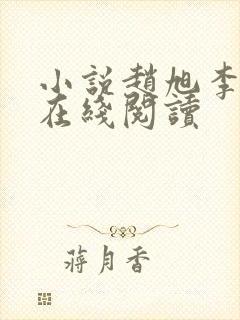 小說趙旭李
在綫閱讀
蔣月香